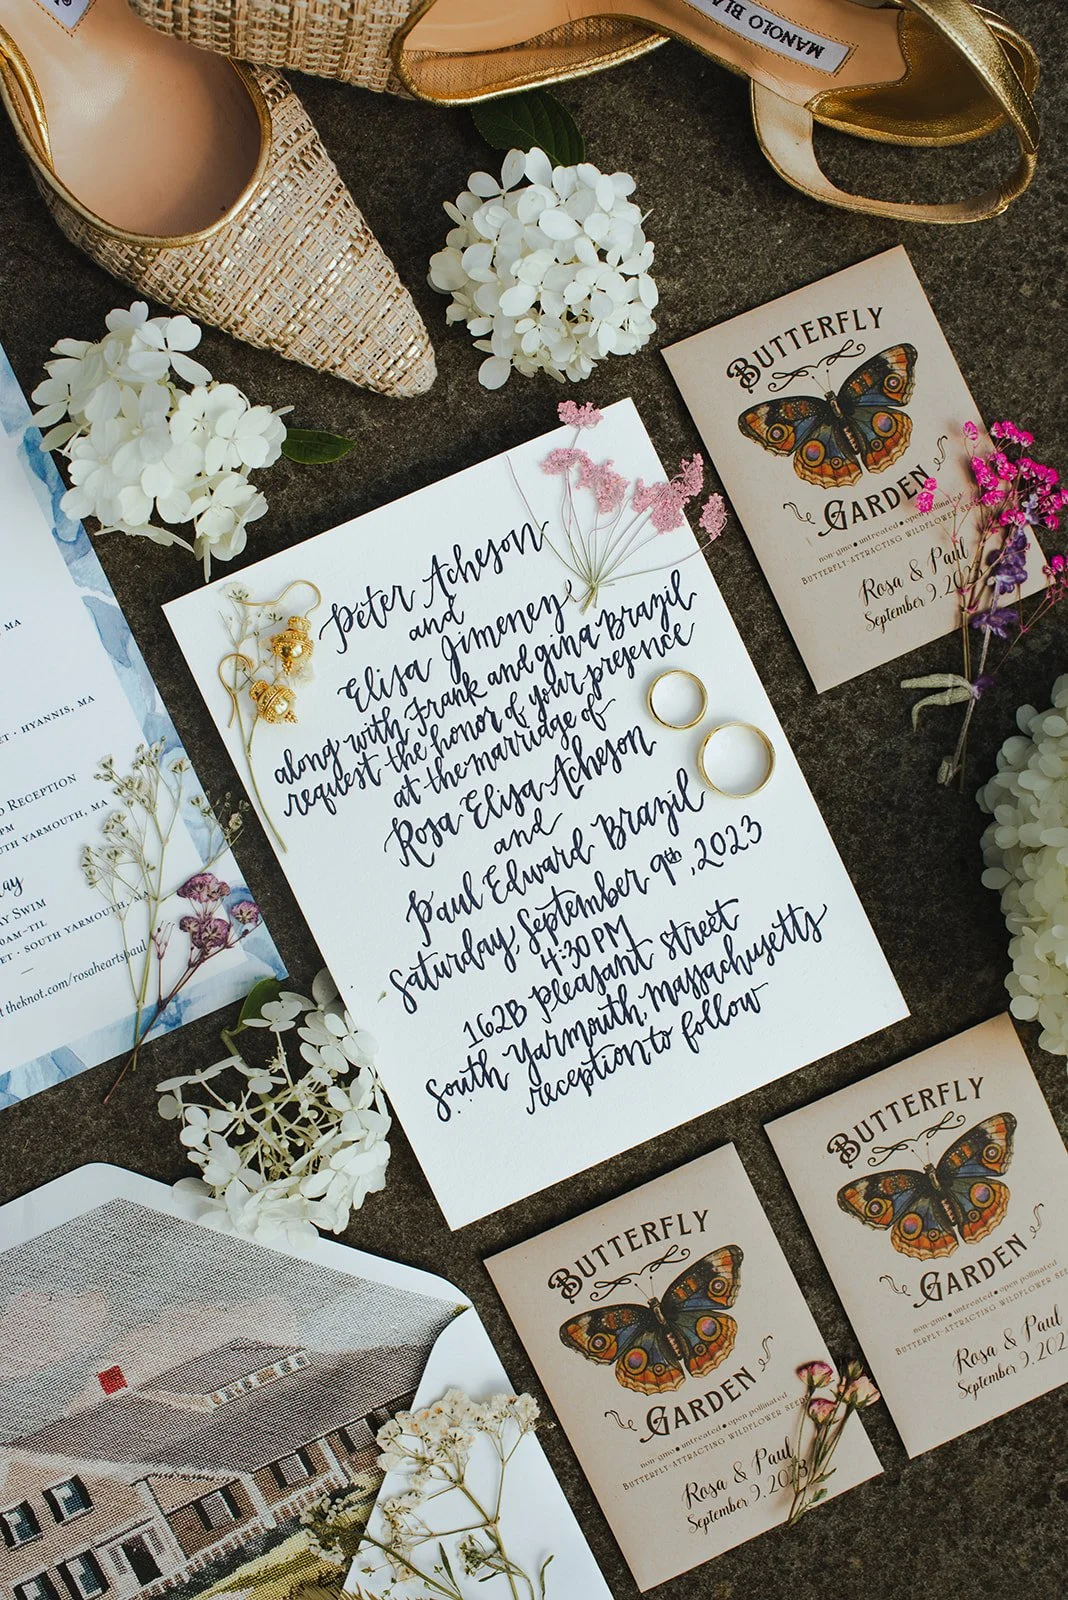 MANOLO BLA
MA
ET · HYANNIS, MA
RECEPTION
PM
TH YARMOUTH, MA
ay
AY SWIM
0AM-TIL
ET · SOUTH YARMOUTH, MA
t theknot.com/rosaheartspaul
Peter Acheson
and
Elisa Jimeney
along with Frank and Gina Brazil
request the honor of your presence
at the marriage of
Rosa Elisa Acheson
and
Paul Edward Brazil
Saturday, September 9th, 2023
4:30 PM
162B Pleasant Street
South Yarmouth, Massachusetts
reception to follow
BUTTERFLY
GARDEN
non-gmo • untreated • open
BUTTERFLY-ATTRACTING WILDFLOWER SEE
Rosa & Paul
September 9, 202
BUTTERFLY
GARDEN
non-gmo • untreated • open pollinated
BUTTERFLY-ATTRACTING WILDFLOWER SEE
Rosa & Paul
September 9, 2023
BUTTERFLY
GARDEN
non-gmo • untreated • open pollinated
BUTTERFLY-ATTRACTING WILDFLOWER SEE
Rosa & Paul
September 9, 202